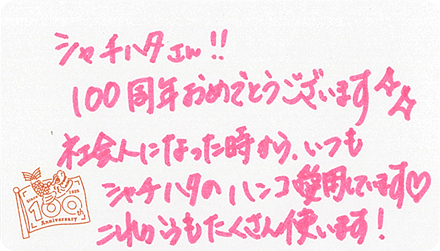 シャチハタさん!!
100周年おめでとうございます☆☆
社会人になった時から、いつも
シャチハタのハンコ愛用しています♡
これからもたくさん使います!
Since 1925
100th
Anniversary